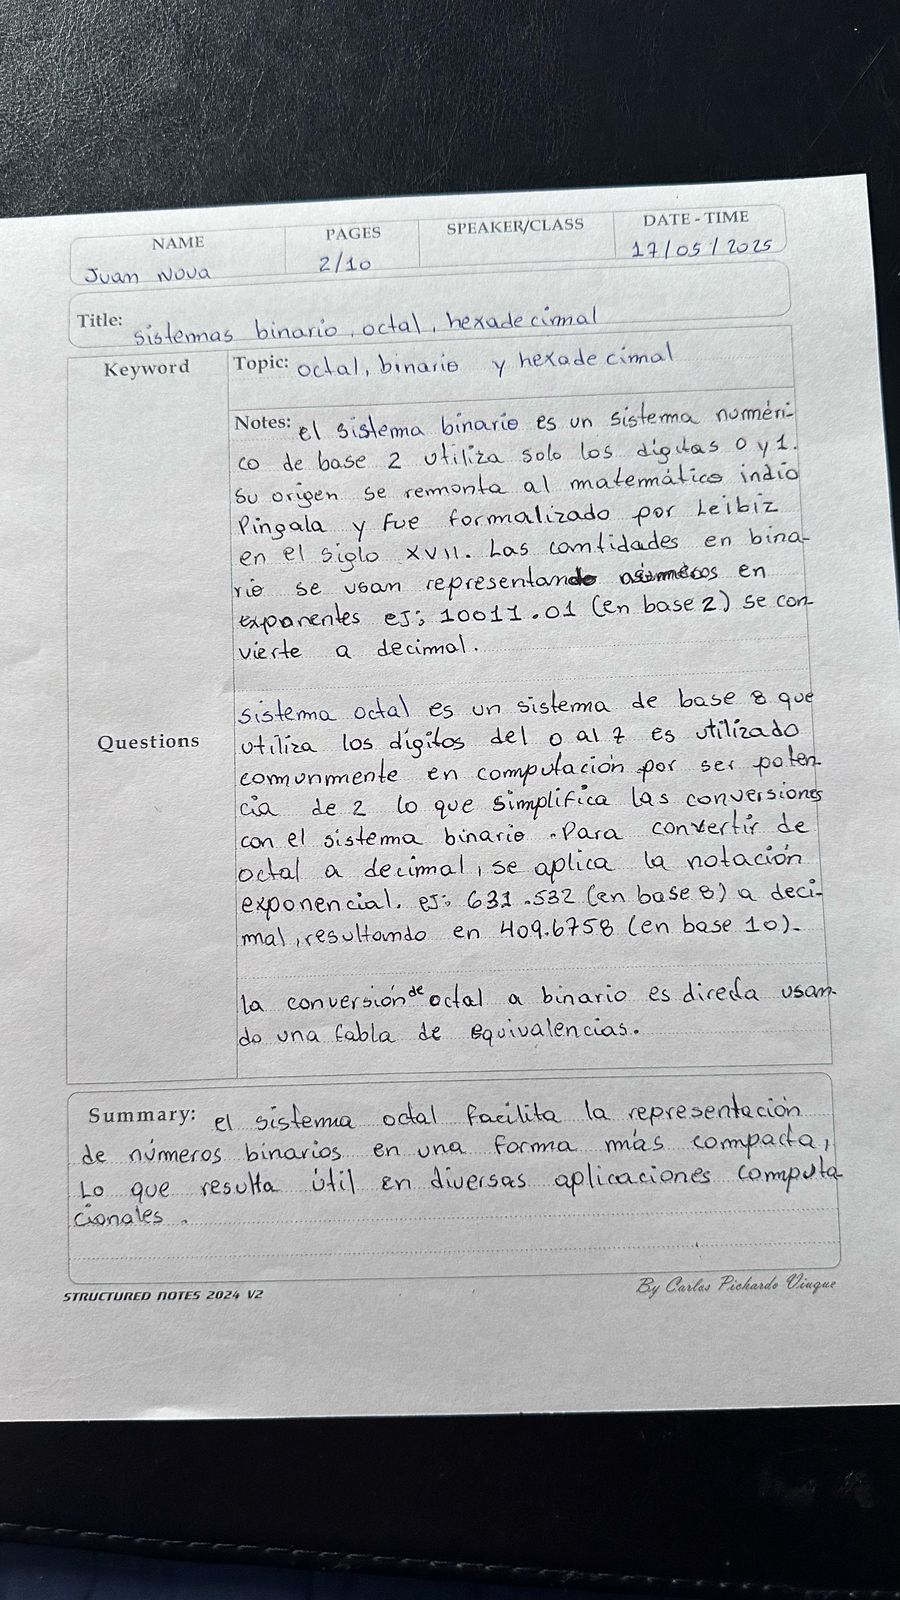 NAME PAGES SPEAKER/CLASS DATE - TIME
Juan Nova 2/10 17/05/2025
Title: sistemas binario, octal, hexadecimal
Keyword Topic: octal, binario y hexadecimal
Notes: el sistema binario es un sistema numéri-
co de base 2 utiliza solo los dígitos 0 y 1.
Su origen se remonta al matemático indio
Pingala y fue formalizado por Leibiz
en el siglo XVII. Las cantidades en bina-
rio se usan representando números en
exponentes ej: 10011.01 (en base 2) se con-
vierte a decimal.
sistema octal es un sistema de base 8 que
Questions utiliza los dígitos del 0 al 7 es utilizado
comunmente en computación por ser poten-
cia de 2 lo que simplifica las conversiones
con el sistema binario. Para convertir de
octal a decimal, se aplica la notación
exponencial. ej: 631.532 (en base 8) a deci-
mal, resultando en 409.6758 (en base 10).
la conversión de octal a binario es directa usan-
do una tabla de equivalencias.
Summary: el sistema octal facilita la representación
de números binarios en una forma más compacta,
Lo que resulta útil en diversas aplicaciones computa
cionales.
STRUCTURED NOTES 2024 V2 By Carlos Pichardo Viuque